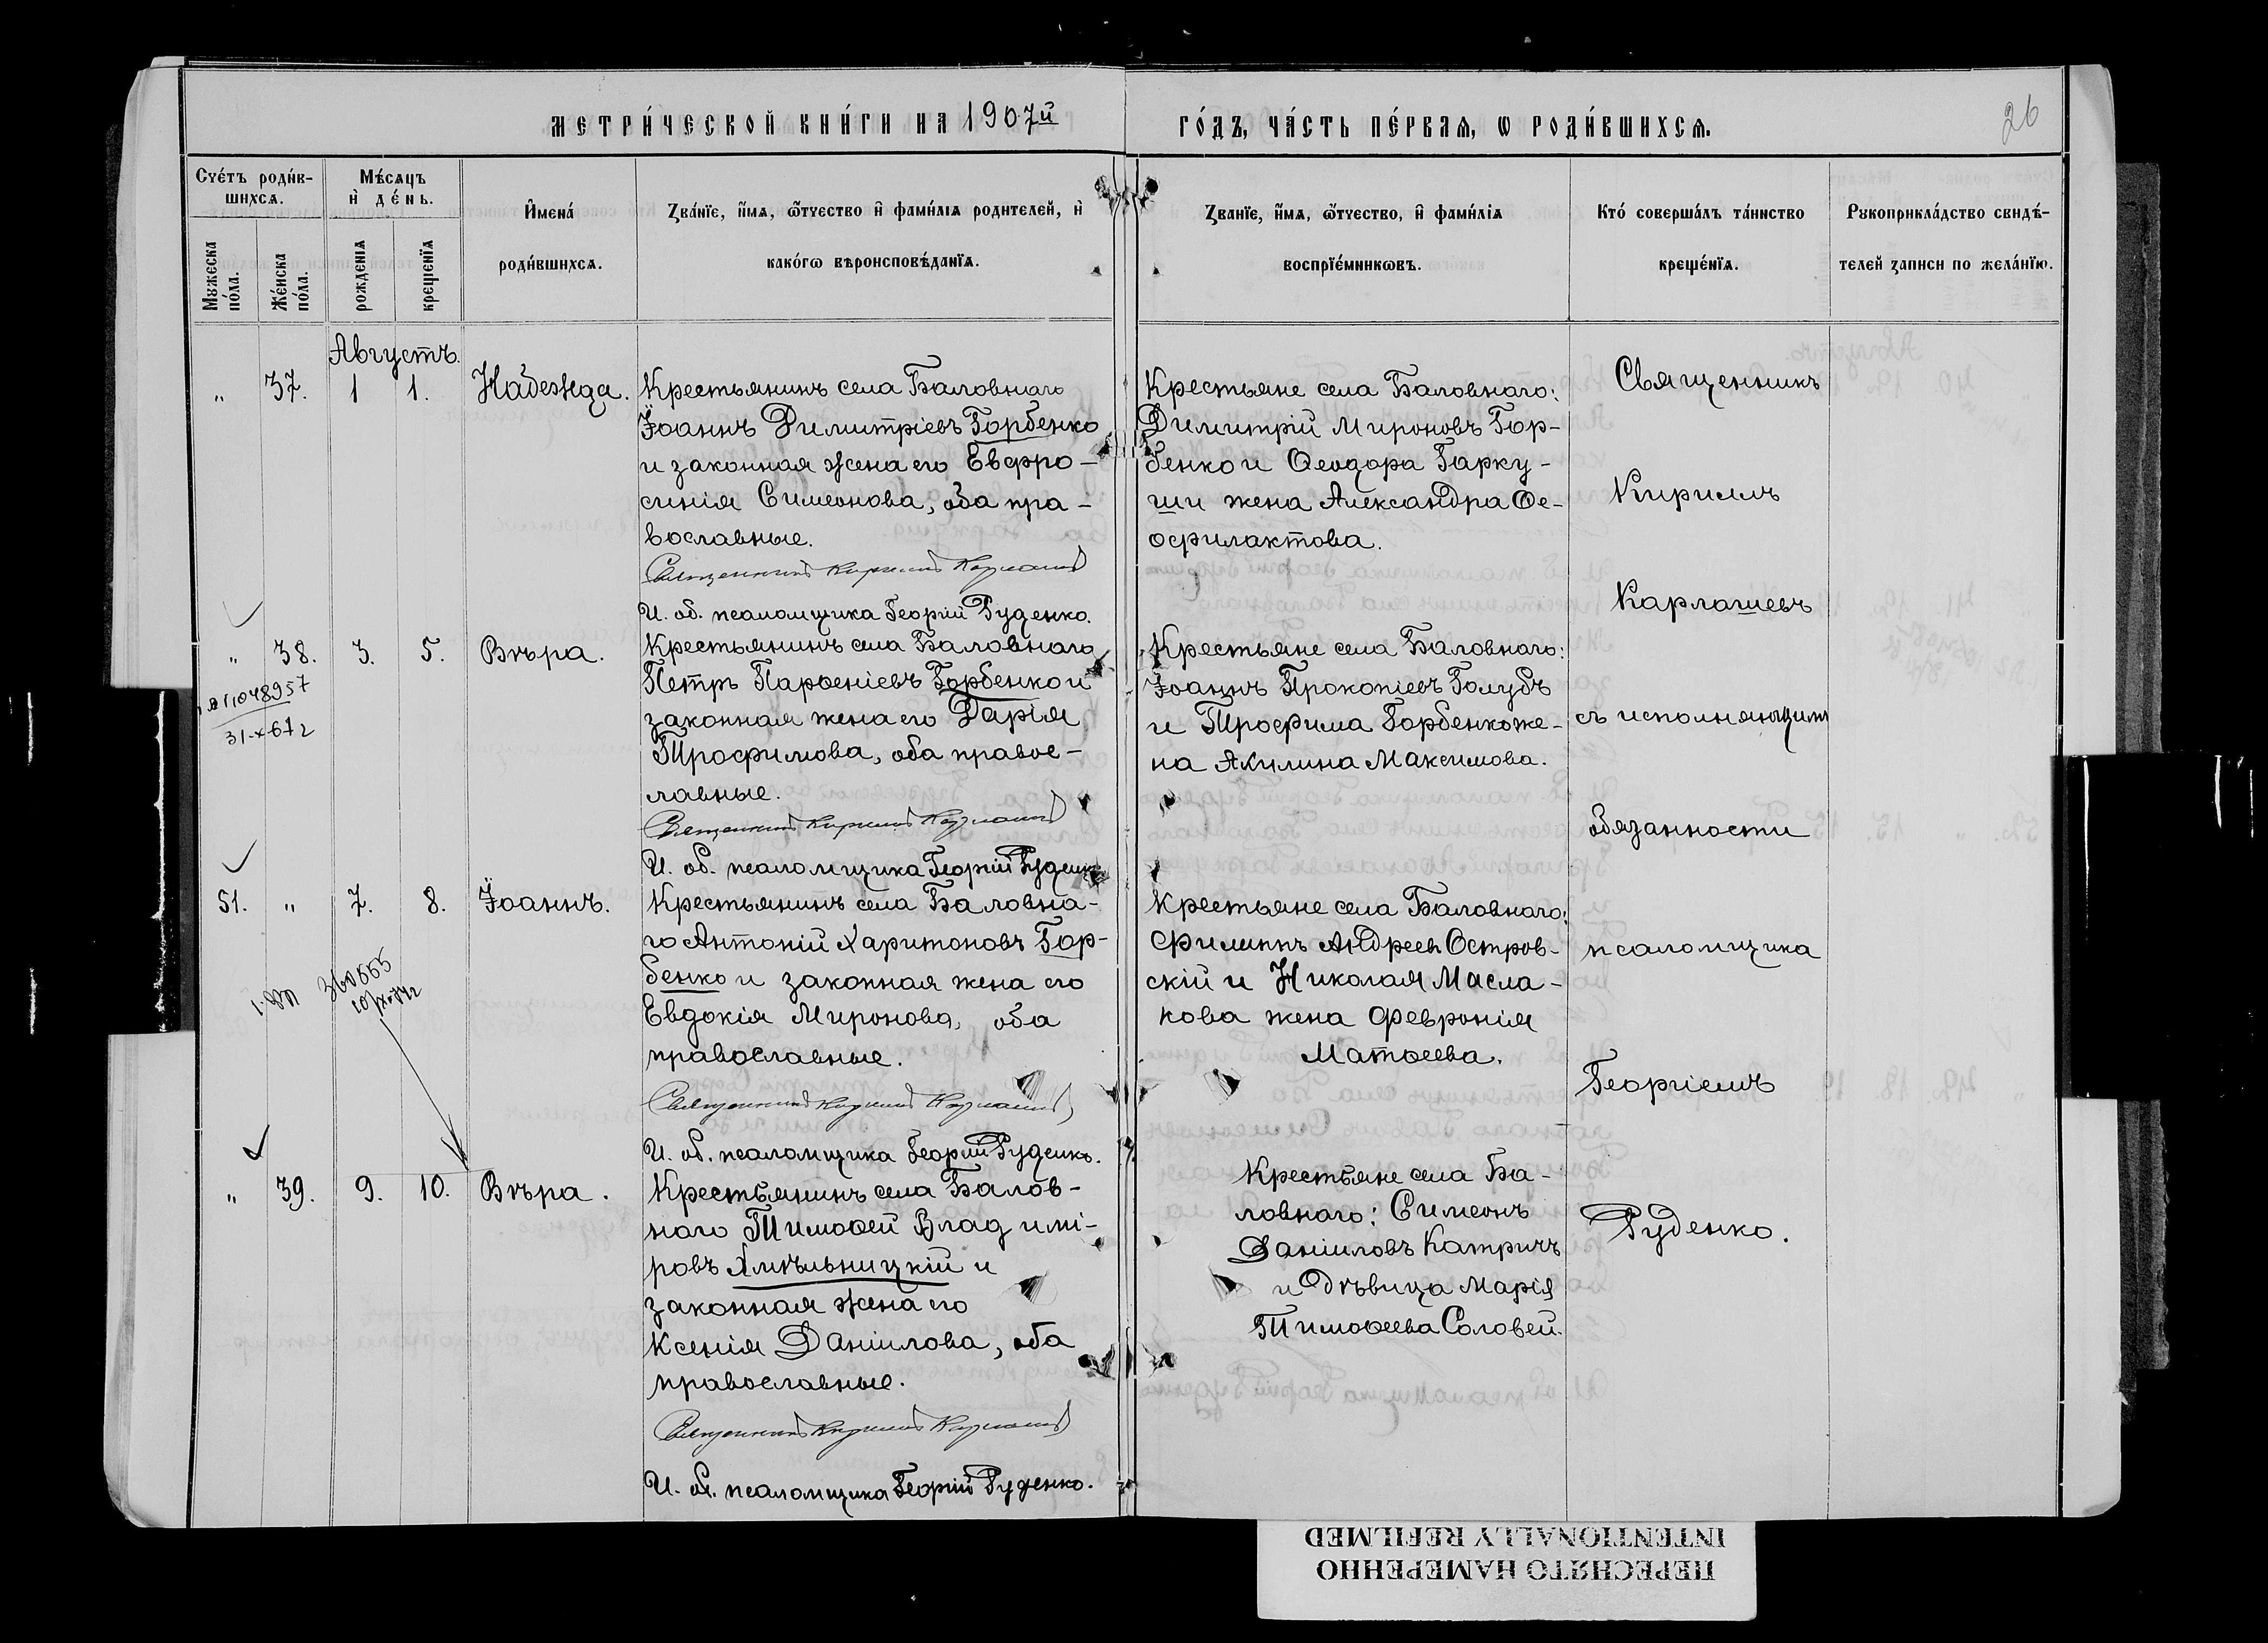 МЕТРИ́ЧЕСКОЙ КНИ́ГИ НА 1907й ГО́ДЪ, ЧА́СТЬ ПЕ́РВАѦ, Ѡ РОДИ́ВШИХСѦ.
26
Сче́тъ роди́в-
шихсѧ.
Мужеска
по́ла.
Же́нска
по́ла.
Мѣ́сѧцъ
и҆ де́нь.
рожденїѧ
крещенїѧ
И҆мена́
роди́вшихсѧ.
Зва́нїе, и҆́мѧ, ѻ҆́тчество и҆ фами́лїѧ родителей, и҆
како́гѡ вѣроисповѣ́данїѧ.
Званїе, и҆́мѧ, ѻ҆́тчество, и҆ фами́лїѧ
воспрїе́мникѡвъ.
Кто́ соверша́лъ та́инство
креще́нїѧ.
Рукоприкла́дство свидѣ́-
телей записи по жела́нїю.
Августъ.
„ 37. 1 1. Надежда.
Крестьянинъ села Баловнаго
Іоаннъ Димитріевъ Горбенко
и законная жена его Евфро-
синія Симеонова, оба пра-
вославные.
Священникъ Кириллъ
И. об. псаломщика Георгій Руденко.
Крестьяне села Баловнаго:
Димитрій Мироновъ Гор-
бенко и Ѳеодора Гарку-
ши жена Александра Ѳе-
офилактова.
„ 38. 3. 5. Вѣра.
31-X-67г
Крестьянинъ села Баловнаго
Петръ Парѳеніевъ Горбенко и
законная жена его Дарія
Трофимова, оба правос-
лавные.
Священникъ Кириллъ
И. об. псаломщика Георгій Руденко
Крестьяне села Баловнаго:
Іоаннъ Прокопіевъ Голубъ
и Трофима Горбенко же-
на Акилина Максимова.
51. „ 7. 8. Іоаннъ.
360555
Крестьянинъ села Баловна-
го Антоній Харитоновъ Гор-
бенко и законная жена его
Евдокія Миронова, оба
православные.
Священникъ Кириллъ
И. об. псаломщика Георгій Руденко.
Крестьяне села Баловнаго:
Филиппъ Андреевъ Остров-
скій и Николая Масла-
кова жена Февронія
Матѳеева.
„ 39. 9. 10. Вѣра.
Крестьянинъ села Балов-
наго Тимоѳей Владимі-
ровъ Хмѣльницкій и
законная жена его
Ксенія Даніилова, оба
православные.
Священникъ Кириллъ
И. об. псаломщика Георгій Руденко.
Крестьяне села Ба-
ловнаго: Симеонъ
Даніиловъ Катричъ
и дѣвица Марія
Тимоѳеева Соловей.
Священникъ
Кириллъ
Карлашевъ
съ исполняющимъ
обязанности
псаломщика
Георгіемъ
Руденко.
ПЕРЕСНЯТО НАМЕРЕННО
INTENTIONALLY REFILMED